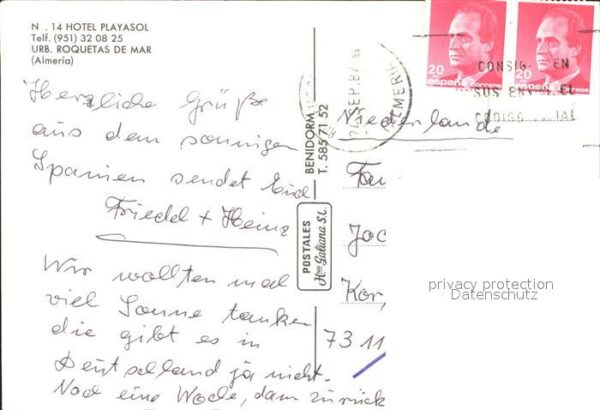 N . 14 HOTEL PLAYASOL
Telf. (951) 32 08 25
URB. ROQUETAS DE MAR
(Almería)
Herzliche Grüße
aus dem sonnigen
Spanien sendet Euch
Friedel + Heinz
Wir wollten mal
viel Sonne tanken
die gibt es in
Deutschland ja nicht.
Noch eine Woche, dann zurück
BENIDORM
T. 585 71 52
POSTALES
Hnos Galiana S.L.
20
españa
20
españa correos
CONSIG EN
SUS ENV
CODIGO TAL
SEP. 87
ALMERIA
Niederlande
Fam
Joc
Kor,
73 11
privacy protection
Datenschutz